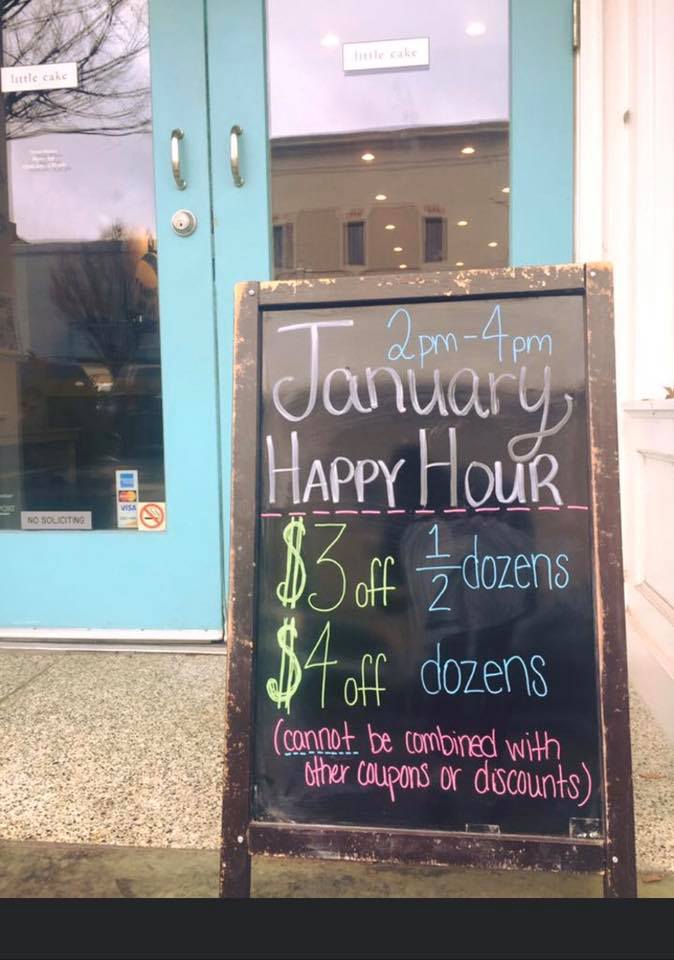 little cake
little cake
2pm-4pm
January
HAPPY HOUR
$3 off 1/2 dozens
$4 off dozens
(cannot be combined with
other coupons or discounts)
NO SOLICITING
VISA